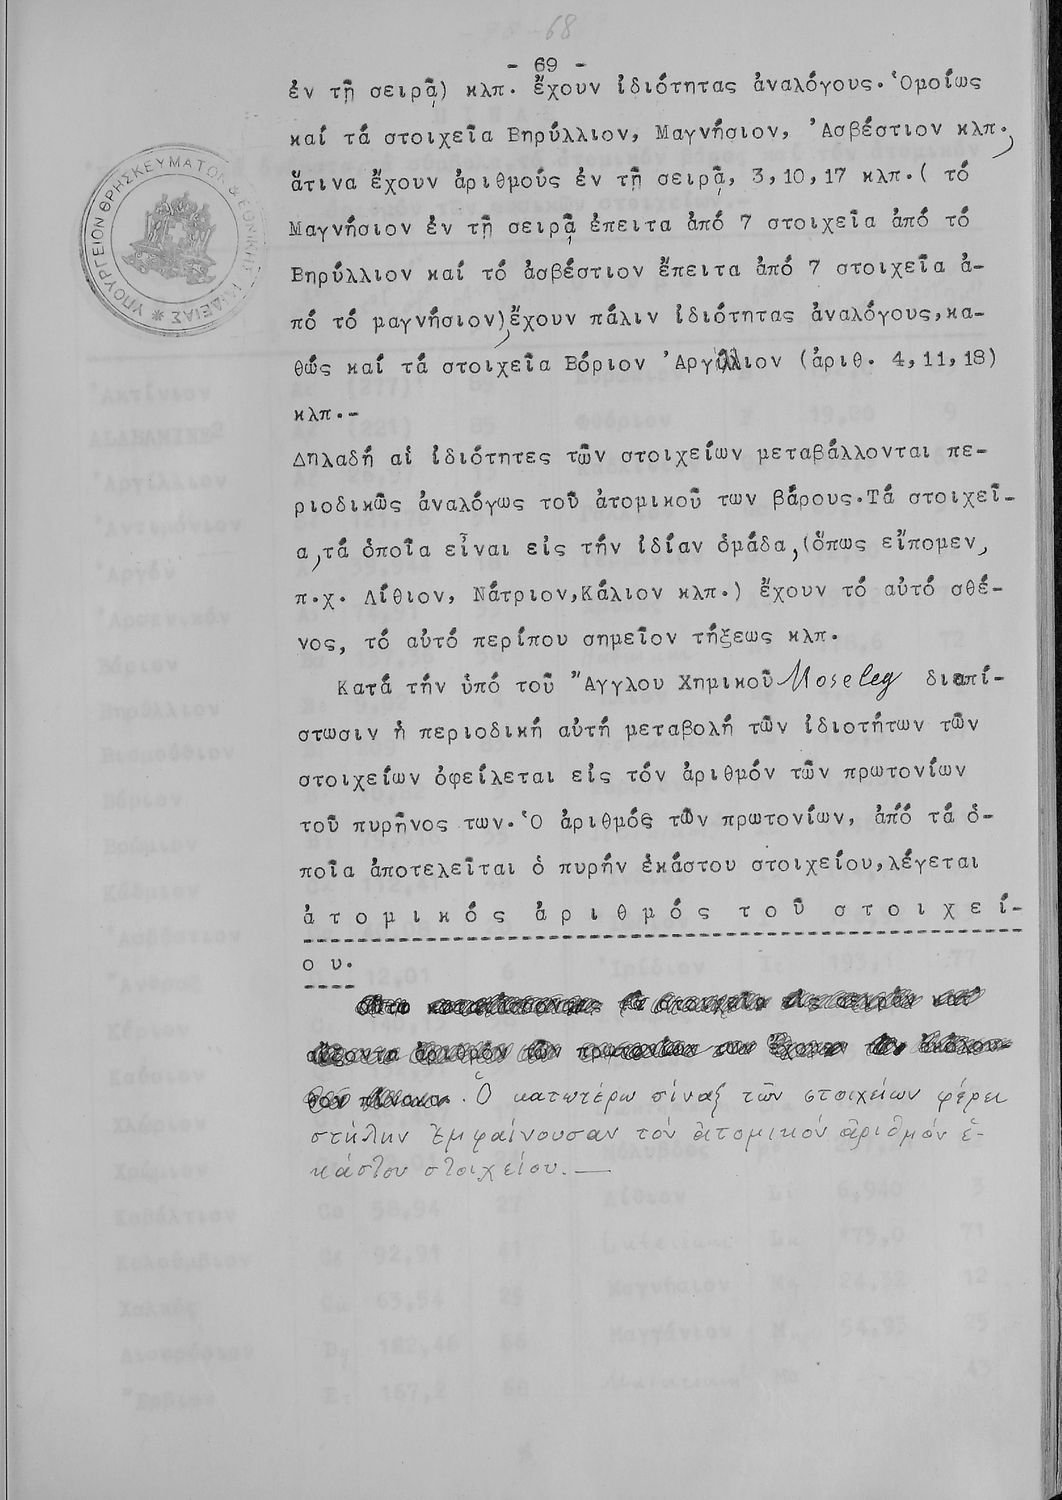 68
- 69 -
ἐν τῇ σειρᾷ) κλπ. ἔχουν ἰδιότητας ἀναλόγους. Ὁμοίως
καί τά στοιχεῖα Βηρύλλιον, Μαγνήσιον, Ἀσβέστιον κλπ.,
ἅτινα ἔχουν ἀριθμούς ἐν τῇ σειρᾷ, 3,10,17 κλπ.( τό
Μαγνήσιον ἐν τῇ σειρᾷ ἔπειτα ἀπό 7 στοιχεῖα ἀπό τό
Βηρύλλιον καί τό ἀσβέστιον ἔπειτα ἀπό 7 στοιχεῖα ἀ-
πό τό μαγνήσιον), ἔχουν πάλιν ἰδιότητας ἀναλόγους, κα-
θώς καί τά στοιχεῖα Βόριον Ἀργίλλιον (ἀριθ. 4,11,18)
κλπ.-
Δηλαδή αἱ ἰδιότητες τῶν στοιχείων μεταβάλλονται πε-
ριοδικῶς ἀναλόγως τοῦ ἀτομικοῦ των βάρους. Τά στοιχεῖ-
α, τά ὁποῖα εἶναι εἰς τήν ἰδίαν ὁμάδα, (ὅπως εἴπομεν,
π.χ. Λίθιον, Νάτριον, Κάλιον κλπ.) ἔχουν τό αὐτό σθέ-
νος, τό αὐτό περίπου σημεῖον τήξεως κλπ.
Κατά τήν ὑπό τοῦ Ἄγγλου Χημικοῦ Moseley διαπί-
στωσιν ἡ περιοδική αὐτή μεταβολή τῶν ἰδιοτήτων τῶν
στοιχείων ὀφείλεται εἰς τόν ἀριθμόν τῶν πρωτονίων
τοῦ πυρῆνος των. Ὁ ἀριθμός τῶν πρωτονίων, ἀπό τά ὁ-
ποῖα ἀποτελεῖται ὁ πυρήν ἑκάστου στοιχείου, λέγεται
ἀ τ ο μ ι κ ό ς ἀ ρ ι θ μ ό ς τ ο ῦ σ τ ο ι χ ε ί -
ο υ.
Ὁ κατωτέρω πίναξ τῶν στοιχείων φέρει
στήλην ἐμφαίνουσαν τόν ἀτομικόν ἀριθμόν ἑ-
κάστου στοιχείου.—
ΥΠΟΥΡΓΕΙΟΝ ΘΡΗΣΚΕΥΜΑΤΩΝ & ΕΘΝΙΚΗΣ ΠΑΙΔΕΙΑΣ